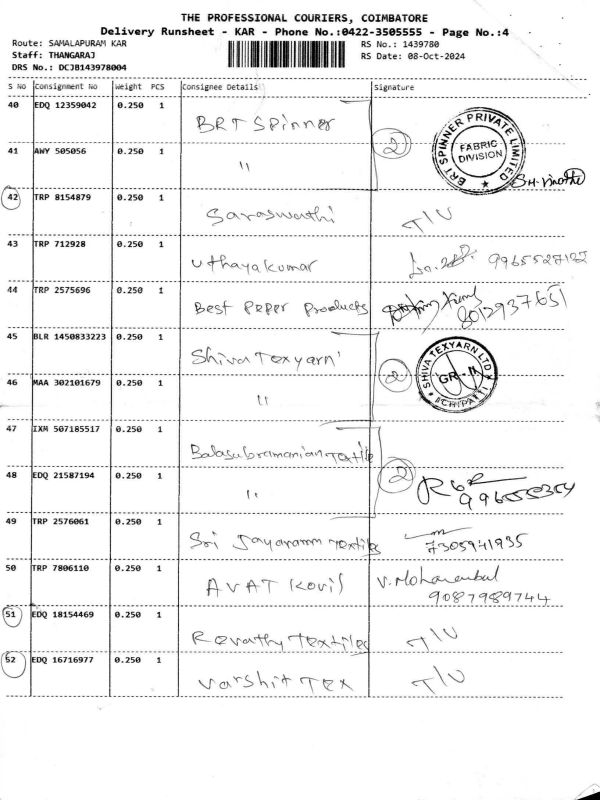 THE PROFESSIONAL COURIERS, COIMBATORE
Delivery Runsheet - KAR - Phone No.:0422-3505555 - Page No.:4
Route: SAMALAPURAM KAR
RS No.: 1439780
Staff: THANGARAJ
RS Date: 08-Oct-2024
DRS No.: DCJB143978004
S No Consignment No Weight PCS Consignee Details Signature
40 EDQ 12359042 0.250 1 BRT Spinner
2
BRT SPINNER PRIVATE LIMITED
FABRIC DIVISION
41 AWY 505056 0.250 1 "
42 TRP 8154879 0.250 1 Saraswathi T/U
43 TRP 712928 0.250 1 Uthayakumar 9965527127
44 TRP 2575696 0.250 1 Best Peper Products 8012937651
45 BLR 1450833223 0.250 1 Shiva Texyarn
2
SHIVA TEXYARN LTD
GR - II
46 MAA 302101679 0.250 1 "
47 IXM 507185517 0.250 1 Balasubramanian Textile
2
48 EDQ 21587194 0.250 1 "
49 TRP 2576061 0.250 1 Sri Jayaramm Textiles 7305941935
50 TRP 7806110 0.250 1 AVAT Kovil V. Mohanambal
9087989744
51 EDQ 18154469 0.250 1 Revathy Textiles T/U
52 EDQ 16716977 0.250 1 Varshit Tex T/U